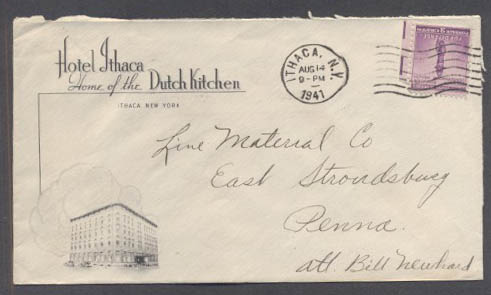 Hotel Ithaca
Home of the Dutch Kitchen
ITHACA, NEW YORK
ITHACA, N.Y.
AUG 14
9-PM
1941
Line Material Co
East Strondsburg
Penna.
att. Bill Newhard